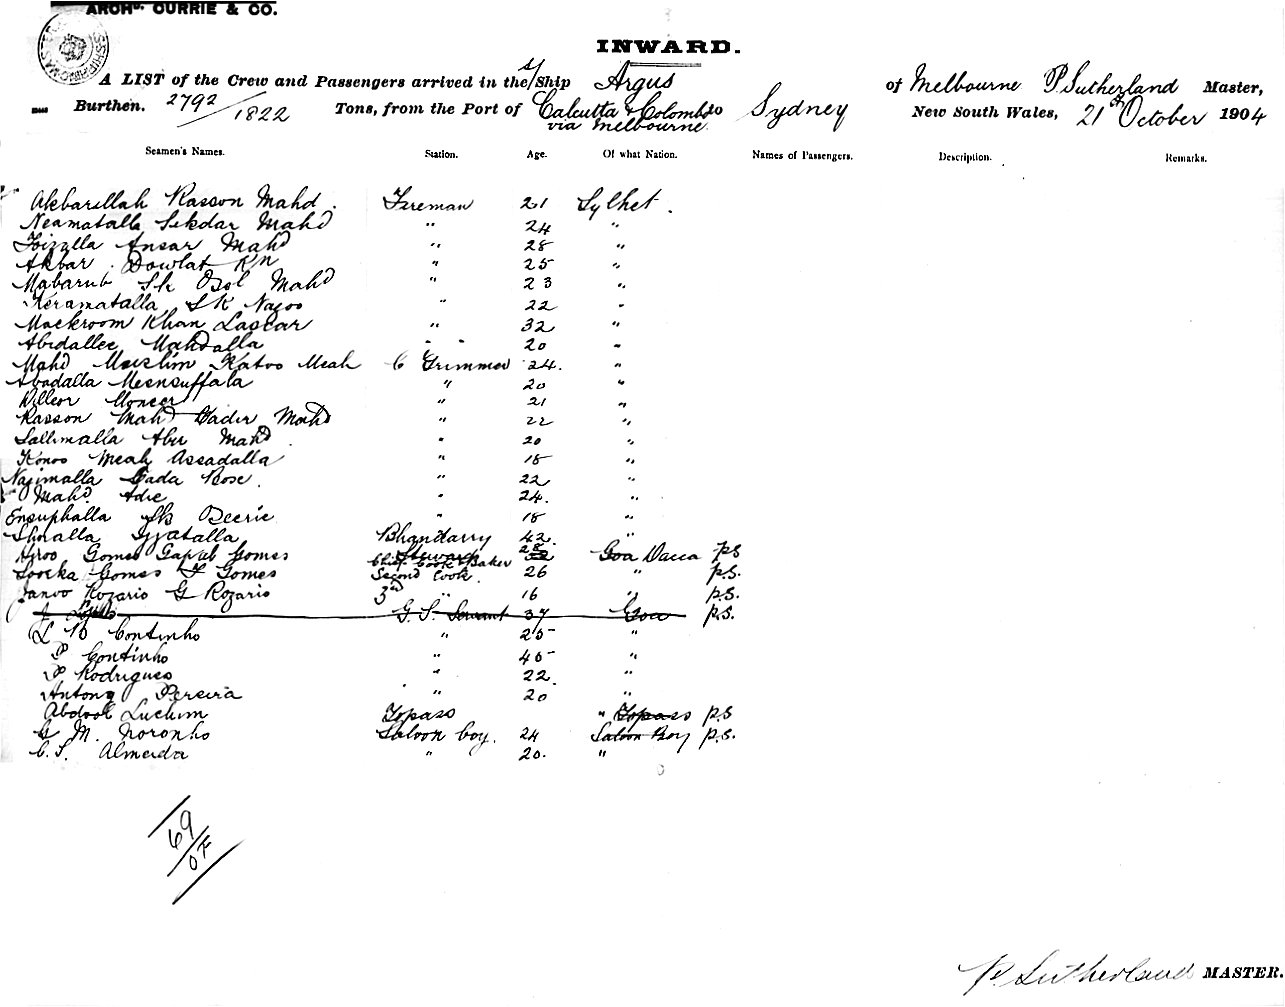 ARCHD. CURRIE & CO.
SHIPPING MASTER
INWARD.
A LIST of the Crew and Passengers arrived in the S/Ship Argus of Melbourne P Sutherland Master,
Burthen. 2792/1822 Tons, from the Port of Calcutta & Colombo to Sydney New South Wales, 21st October 1904
via Melbourne.
Seamen's Names. Station. Age. Of what Nation. Names of Passengers. Description. Remarks.
Akbarullah Rasson Mahd. Fireman 21 Sylhet.
Neamatalla Sekdar Mahd " 24 "
Foizella Ansar Mahd " 28 "
Akbar Dowlat Kn " 25 "
Mabarub Sk Ozol Mahd " 23 "
Keramatalla SK Nasoo " 22 "
Mackroom Khan Lascar " 32 "
Abidallee Mahdalla " 20 "
Mahd Muslim Katoo Meah C Trimmer 24. "
Abadalla Meensuffala " 20 "
Moneer " 21 "
Rasson Mahd Gader Mahd " 22 "
Sallimalla Abu Mahd " 20 "
Konoo Meah Assadalla " 18 "
Najimalla Gada Bose. " 22 "
Mahd. Adie " 24. "
Ensuphalla Sk Deerie " 18 "
Gyatalla Bhandarry 42. "
Gomes Gomes Steward Chief Cook & Baker 28 Goa Dacca p.s
Gomes F Gomes Second Cook. 26 " p.s.
Rozario G Rozario 3rd " 16 " p.s.
J G.S. Servant 37 Goa p.s.
L B Continho " 25 "
P Continho " 45 "
P Rodrigues " 22. "
Antony Pereira " 20 "
Abdool Luchim Topass " Topass p.s
G M. Noronho Saloon boy. 24 Saloon Boy p.s.
C. S. Almeida " 20. "
69
P. Sutherland MASTER.